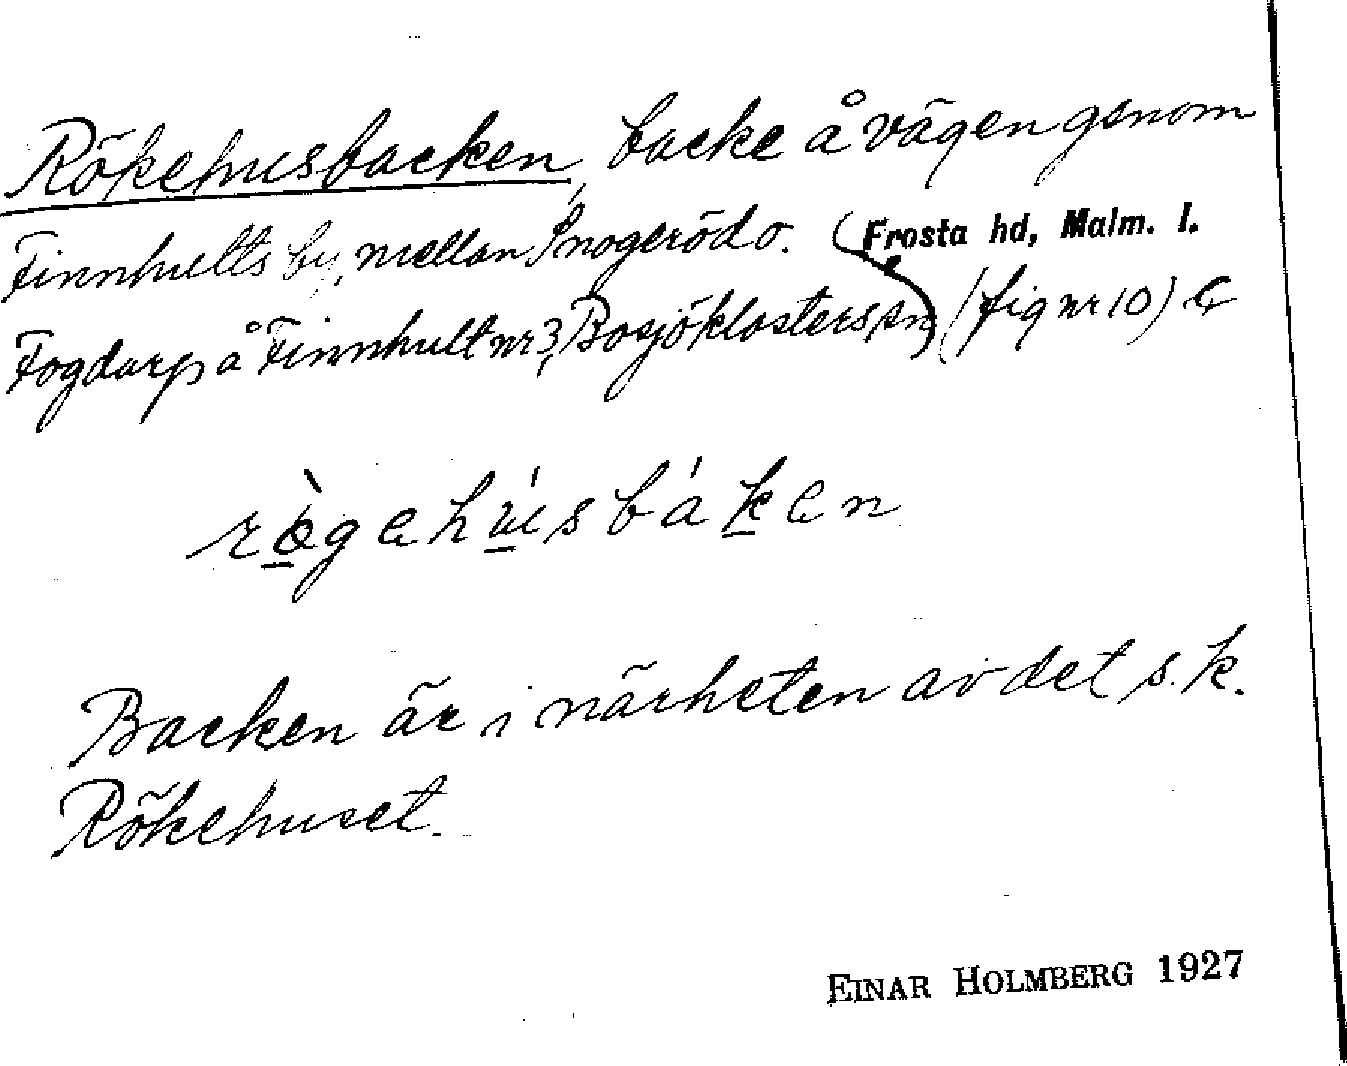 Rökehusbacken, backe å vägen genom
Finnhults by, mellan Snogeröd o. Frosta hd, Malm. l.
Fogdarp å Finnhult nr 3, Bosjöklosters sn (fig nr 10)
rø̀gehúsbáken
Backen är i närheten av det s.k.
Rökehuset.
EINAR HOLMBERG 1927